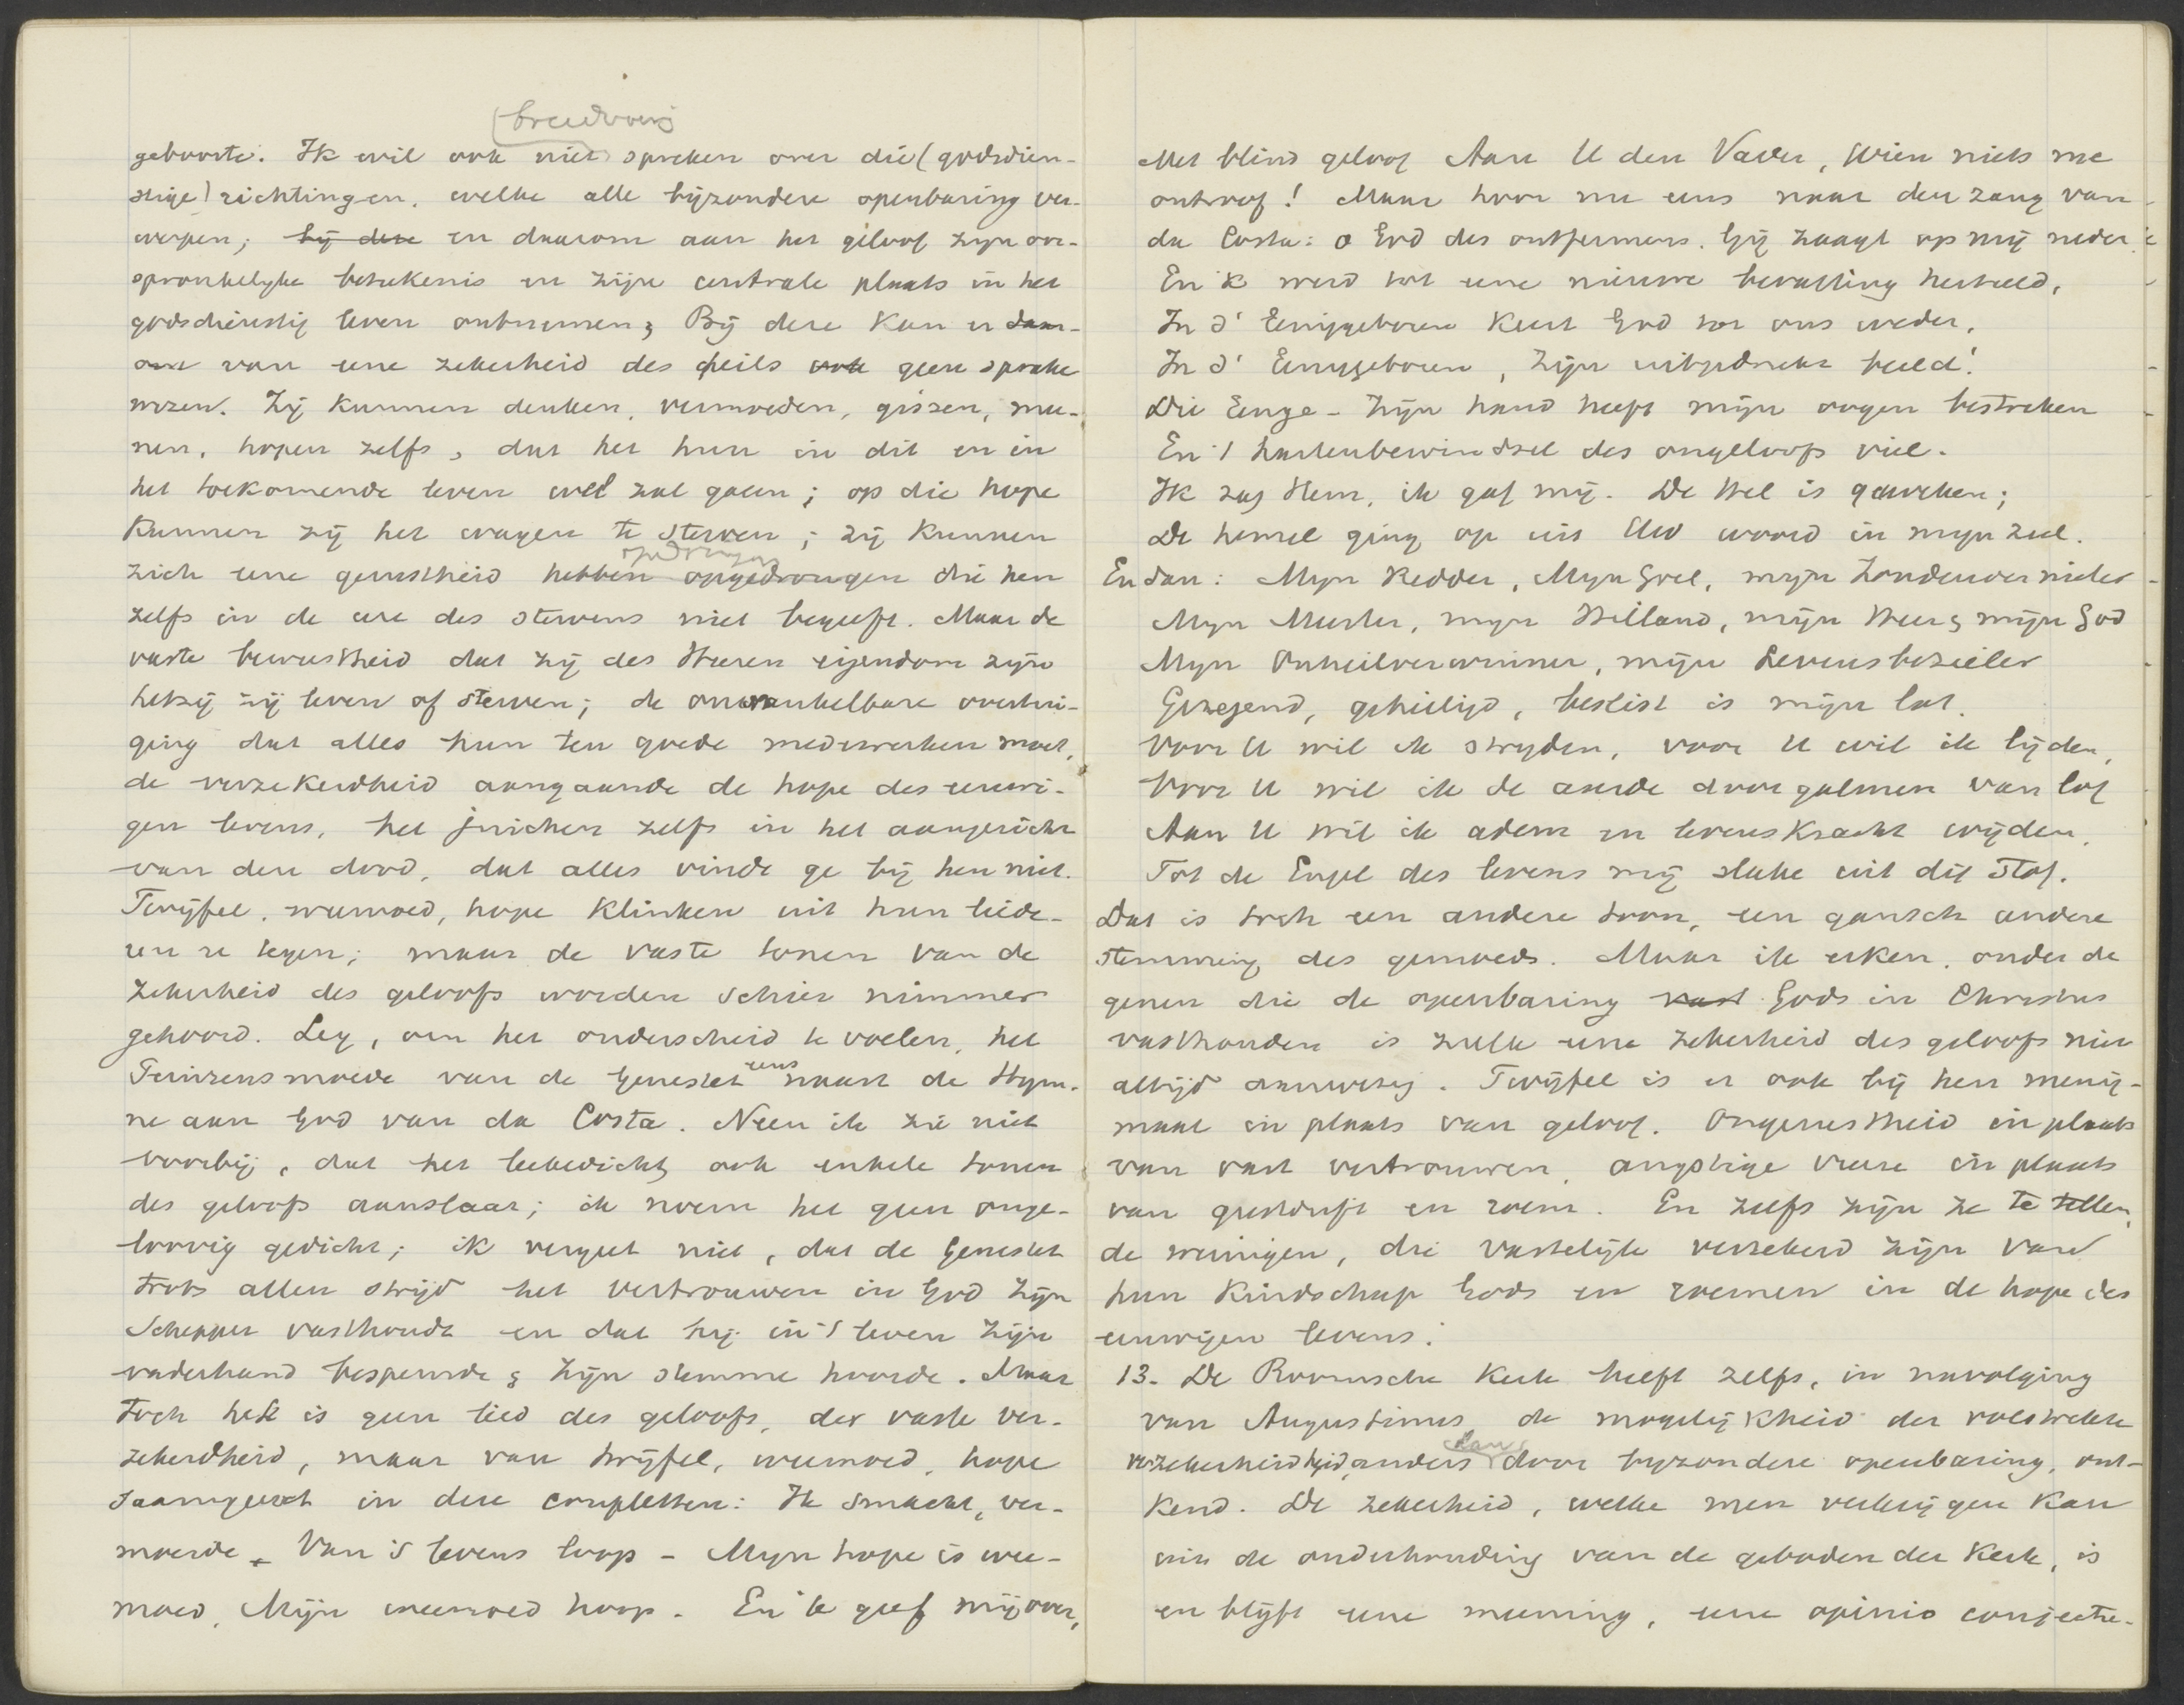 breedvoerig
geboorte. Ik wil ook niet spreken over die (godsdien-
stige) richtingen, welke alle bijzondere openbaring ver-
werpen; bij deze en daarom aan het geloof zijn oor-
spronkelijke beteekenis en zijne centrale plaats in het
godsdienstig leven ontnemen; Bij deze kan er daar-
om van eene zekerheid des heils ook geen sprake
wezen. Zij kunnen denken, vermoeden, gissen, mee-
nen, hopen zelfs, dat het hun in dit en in
het toekomende leven wel zal gaan; op die hope
kunnen zij het wagen te sterven; zij kunnen
opdringen
zich eene gerustheid hebben opgedrongen die hen
zelfs in de ure des stervens niet begeeft. Maar de
vaste bewustheid dat zij des Heeren eigendom zijn
hetzij zij leven of sterven; de onwankelbare overtui-
ging dat alles hun ten goede medewerken moet,
de verzekerdheid aangaande de hope des eeuwi-
gen levens, het juichen zelfs in het aangezicht
van den dood, dat alles vindt ge bij hen niet.
Twijfel, weemoed, hope klinken uit hun liede-
ren u tegen; maar de vaste tonen van de
zekerheid des geloofs worden schier nimmer
gehoord. Leg, om het onderscheid te voelen, het
Peinzensmoede van de Genestet eens naast de Hym-
ne aan God van da Costa. Neen ik zie niet
voorbij, dat het leekedicht ook enkele tonen
des geloofs aanslaat; ik noem het geen onge-
loovig gedicht; ik vergeet niet, dat de Genestet
trots allen strijd het vertrouwen in God zijn
Schepper vasthoudt en dat hij in 't leven zijn
vaderhand bespeurde & zijn stemme hoorde. Maar
toch het is geen lied des geloofs, der vaste ver-
zekerdheid, maar van twijfel, weemoed, hope
saamgevat in deze coupletten: Ik smacht, ver-
moeide - Van 's levens loop - Mijn hope is wee-
moed, Mijn weemoed hoop. En 'k geef mij over,
Met blind geloof Aan U den Vader, Wien niets me
ontroof! Maar hoor nu eens naar den zang van
da Costa: o God des ontfermens. Gij zaagt op mij neder
En 'k werd tot eene nieuwe bevatting herteeld,
In d' Eeniggeboren keert God tot ons weder,
In d' Eeniggeboren, Zijn uitgedrukt beeld!
Die Eenge - Zijn hand heeft mijn oogen bestreken
En 't hartenbewindsel des ongeloofs viel.
Ik zag Hem, ik gaf mij. De Hel is geweken;
De hemel ging op uit Uw woord in mijn ziel.
En dan: Mijn Redder, Mijn Goel, mijn Zondenvernieler
Mijn Meester, mijn Heiland, mijn Heer & mijn God
Mijn Onheilverwinner, mijn Levensbezieler
Gezegend, geheiligd, beslist is mijn lot.
Voor U wil ik strijden, voor U wil ik lijden,
Voor U wil ik de aarde doorgalmen van lof
Aan U wil ik adem en levenskracht wijden,
Tot de Engel des levens mij slake uit dit stof.
Dat is toch een andere toon, een gansch andere
stemming des gemoeds. Maar ik erken, onder de
genen die de openbaring vast Gods in Christus
vasthouden is zulk eene zekerheid des geloofs niet
altijd aanwezig. Twijfel is er ook bij hen menig-
maal in plaats van geloof. Ongerustheid in plaats
van vast vertrouwen, angstige vreeze in plaats
van geestdrift en roem. En zelfs zijn ze te tellen,
de weinigen, die vastelijk verzekerd zijn van
hun kindschap Gods en roemen in de hope des
eeuwigen levens.
13. De Roomsche Kerk heeft zelfs, in navolging
van Augustinus, de mogelijkheid der volstrekte
verzekerdheid, anders dan door bijzondere openbaring, ont-
kend. De zekerheid, welke men verkrijgen kan
uit de onderhouding van de geboden der Kerk, is
en blijft eene meening, eene opinio conjectu-